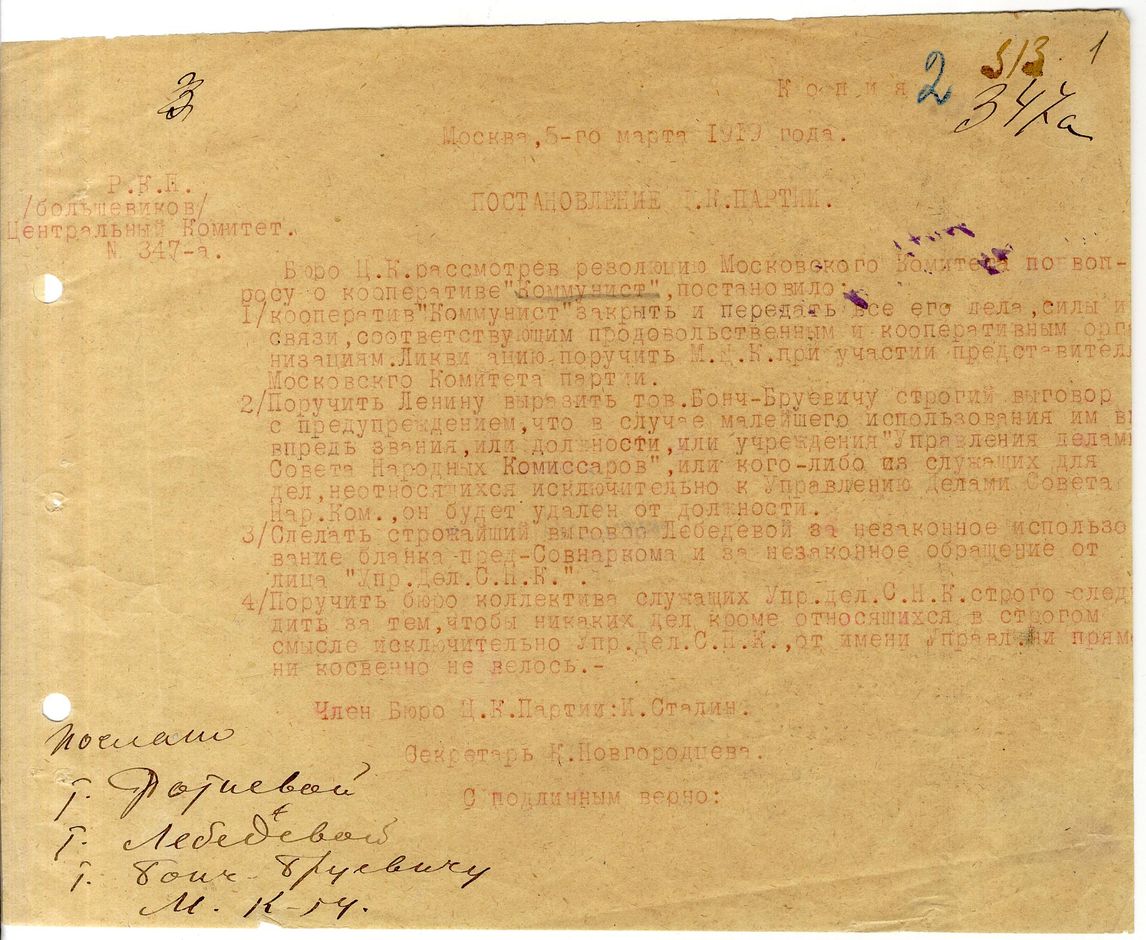 3
2
313. 1
347а
Копия
Москва,5-го марта 1919 года.
Р.К.П.
/большевиков/
Центральный Комитет.
N 347-а.
ПОСТАНОВЛЕНИЕ Ц.К.ПАРТИИ.
Бюро Ц.К.рассмотрев резолюцию Московского Комитета по воп-
росу о кооперативе"Коммунист",постановило:
1/кооператив"Коммунист"закрыть и передать все его дела,силы и
связи,соответствующим продовольственным и кооперативным орга
низациям.Ликви анию поручить М. .К.при участии представител
Московскго Комитета партии.
2/Поручить Ленину выразить тов.Бонч-Бруевичу строгий выговор
с предупреждением,что в случае малейшего использования им в
впредь звания,или должности,или учреждения"Управления делами
Совета Народных Комиссаров",или кого-либо из служащих для
дел,неотносящихся исключительно к Управлению Делами Совета
Нар.Ком.,он будет удален от должности.
3/Сделать строжайший выговор Лебедевой за незаконное использо
вание бланка пред-Совнаркома и за незаконное обращение от
лица "Упр.Дел.С.Н.К.".
4/Поручить бюро коллектива служащих Упр.дел.С.Н.К.строго след
дить за тем,чтобы никаких дел кроме относящихся в строгом
смысле исключительно Упр.Дел.С.Н.К.,от имени Управл ни прям
ни косвенно не велось.-
Член Бюро Ц.К.Партии:И.Сталин.
Секретарь К.Новгородцева.
С подлинным верно:
Послать
т.
т. Лебедевой
т. Бонч-Бруевичу
М. К-ту.